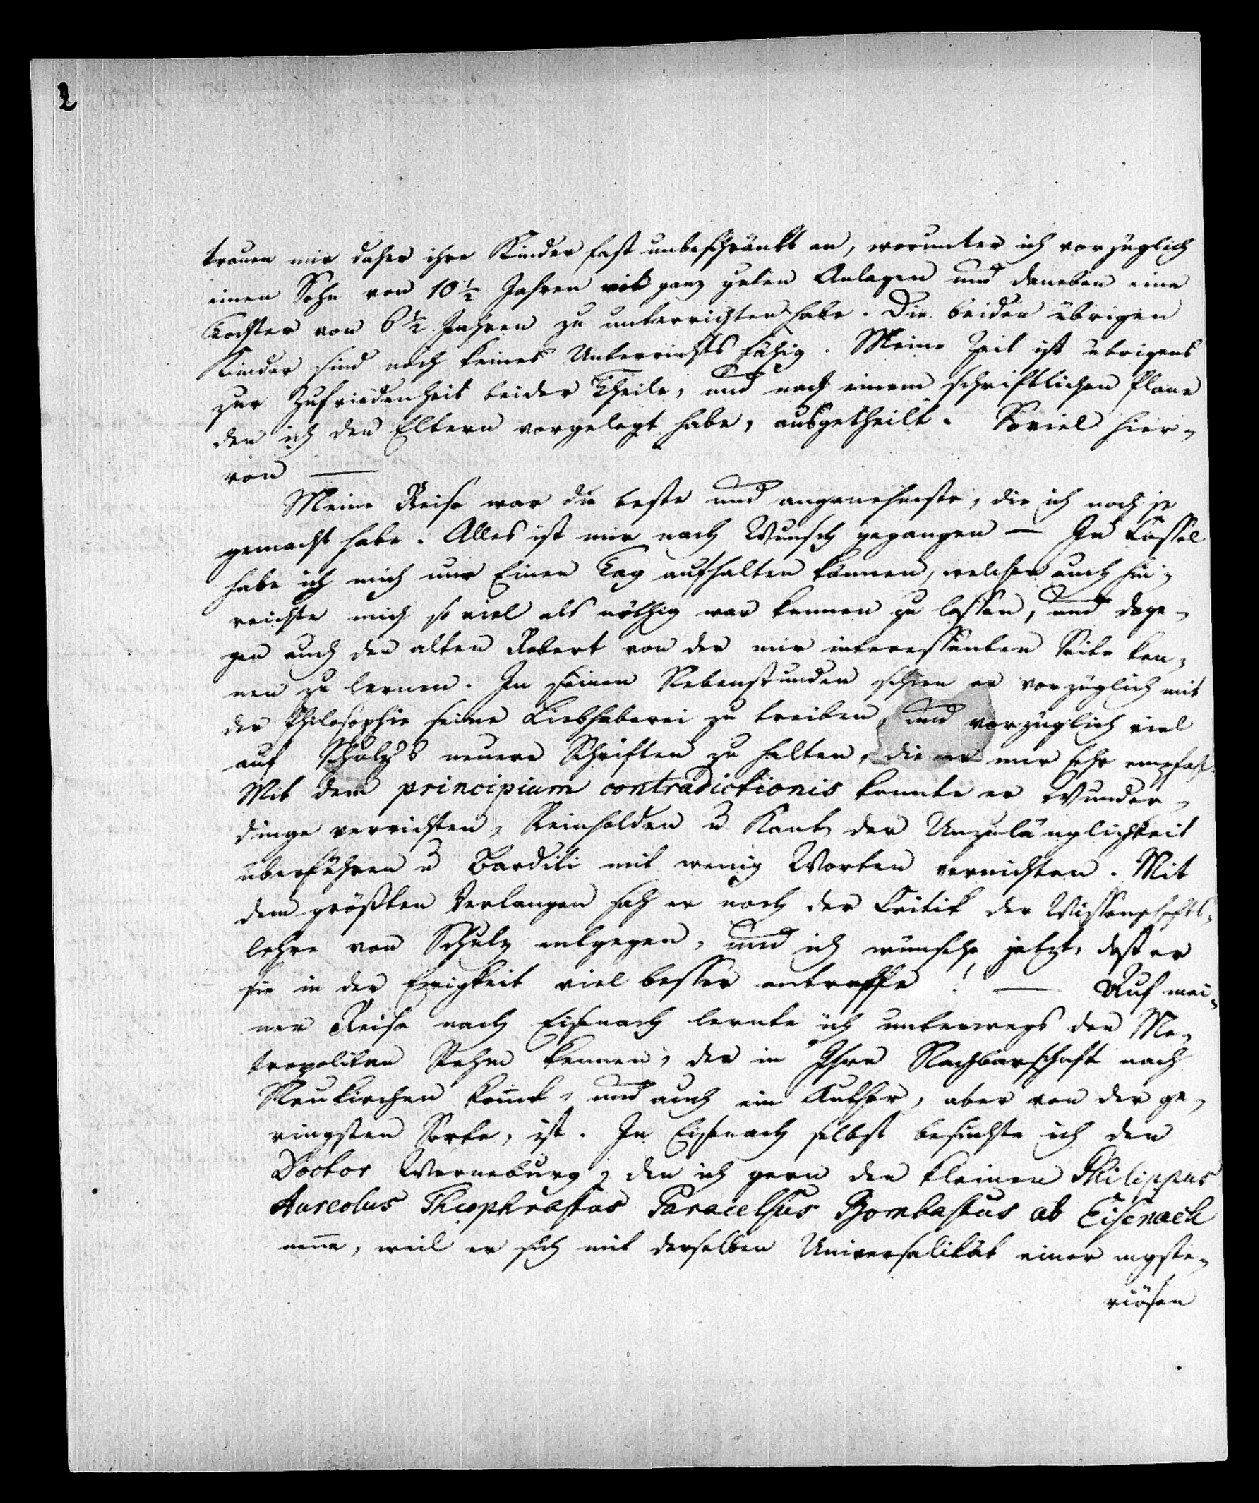 2
trauen mir daher ihre Kinder fast unbeschränkt an, worunter ich vorzüglich
einen Sohn von 10 1/2 Jahren mit ganz guten Anlagen und daneben eine
Tochter von 6 1/2 Jahren zu unterrichten habe. Die beiden übrigen
Kinder sind noch keines Unterrichts fähig. Meine Zeit ist übrigens
zur Zufriedenheit beider Theile, und nach einem schriftlichen Plane
den ich den Eltern vorgelegt habe, ausgetheilt. Soviel hier-
von —
Meine Reise war die beste und angenehmste, die ich noch je
gemacht habe. Alles ist mir nach Wunsch gegangen — In Cassel
habe ich mich nur Einen Tag aufhalten können, welcher auch hin-
reichte mich so viel als nöthig war kennen zu lassen, und dage-
gen auch den alten Robert von der mir interessanten Seite ken-
nen zu lernen. In seinen Nebenstunden schien er vorzüglich mit
der Philosophie seine Liebhaberei zu treiben, und vorzüglich viel
auf Schulz's neuere Schriften zu halten, die er mir sehr empfahl.
Mit dem principium contradictionis konnte er Wunder-
dinge verrichten, Reinholden u Kant der Unzulänglichkeit
überführen u Bardili mit wenig Worten vernichten. Mit
dem größten Verlangen sah er noch der Critik der Wissenschafts-
lehre von Schulz entgegen, und ich wünsche jetzt, daß er
sie in der Ewigkeit viel besser antreffe! — Auf mei-
ner Reise nach Eisenach lernte ich unterwegs den Me-
tropolitan Rehm kennen, der in Ihre Nachbarschaft nach
Neukirchen kömmt, und auch ein Author, aber von der ge-
ringsten Sorte, ist. In Eisenach selbst besuchte ich den
Doctor Werneburg, den ich gern den kleinen Philippus
Aureolus Theophrastus Paracelsus Bombastus ab Eisenach
nenne, weil er sich mit derselben Universalität einer myste-
riösen